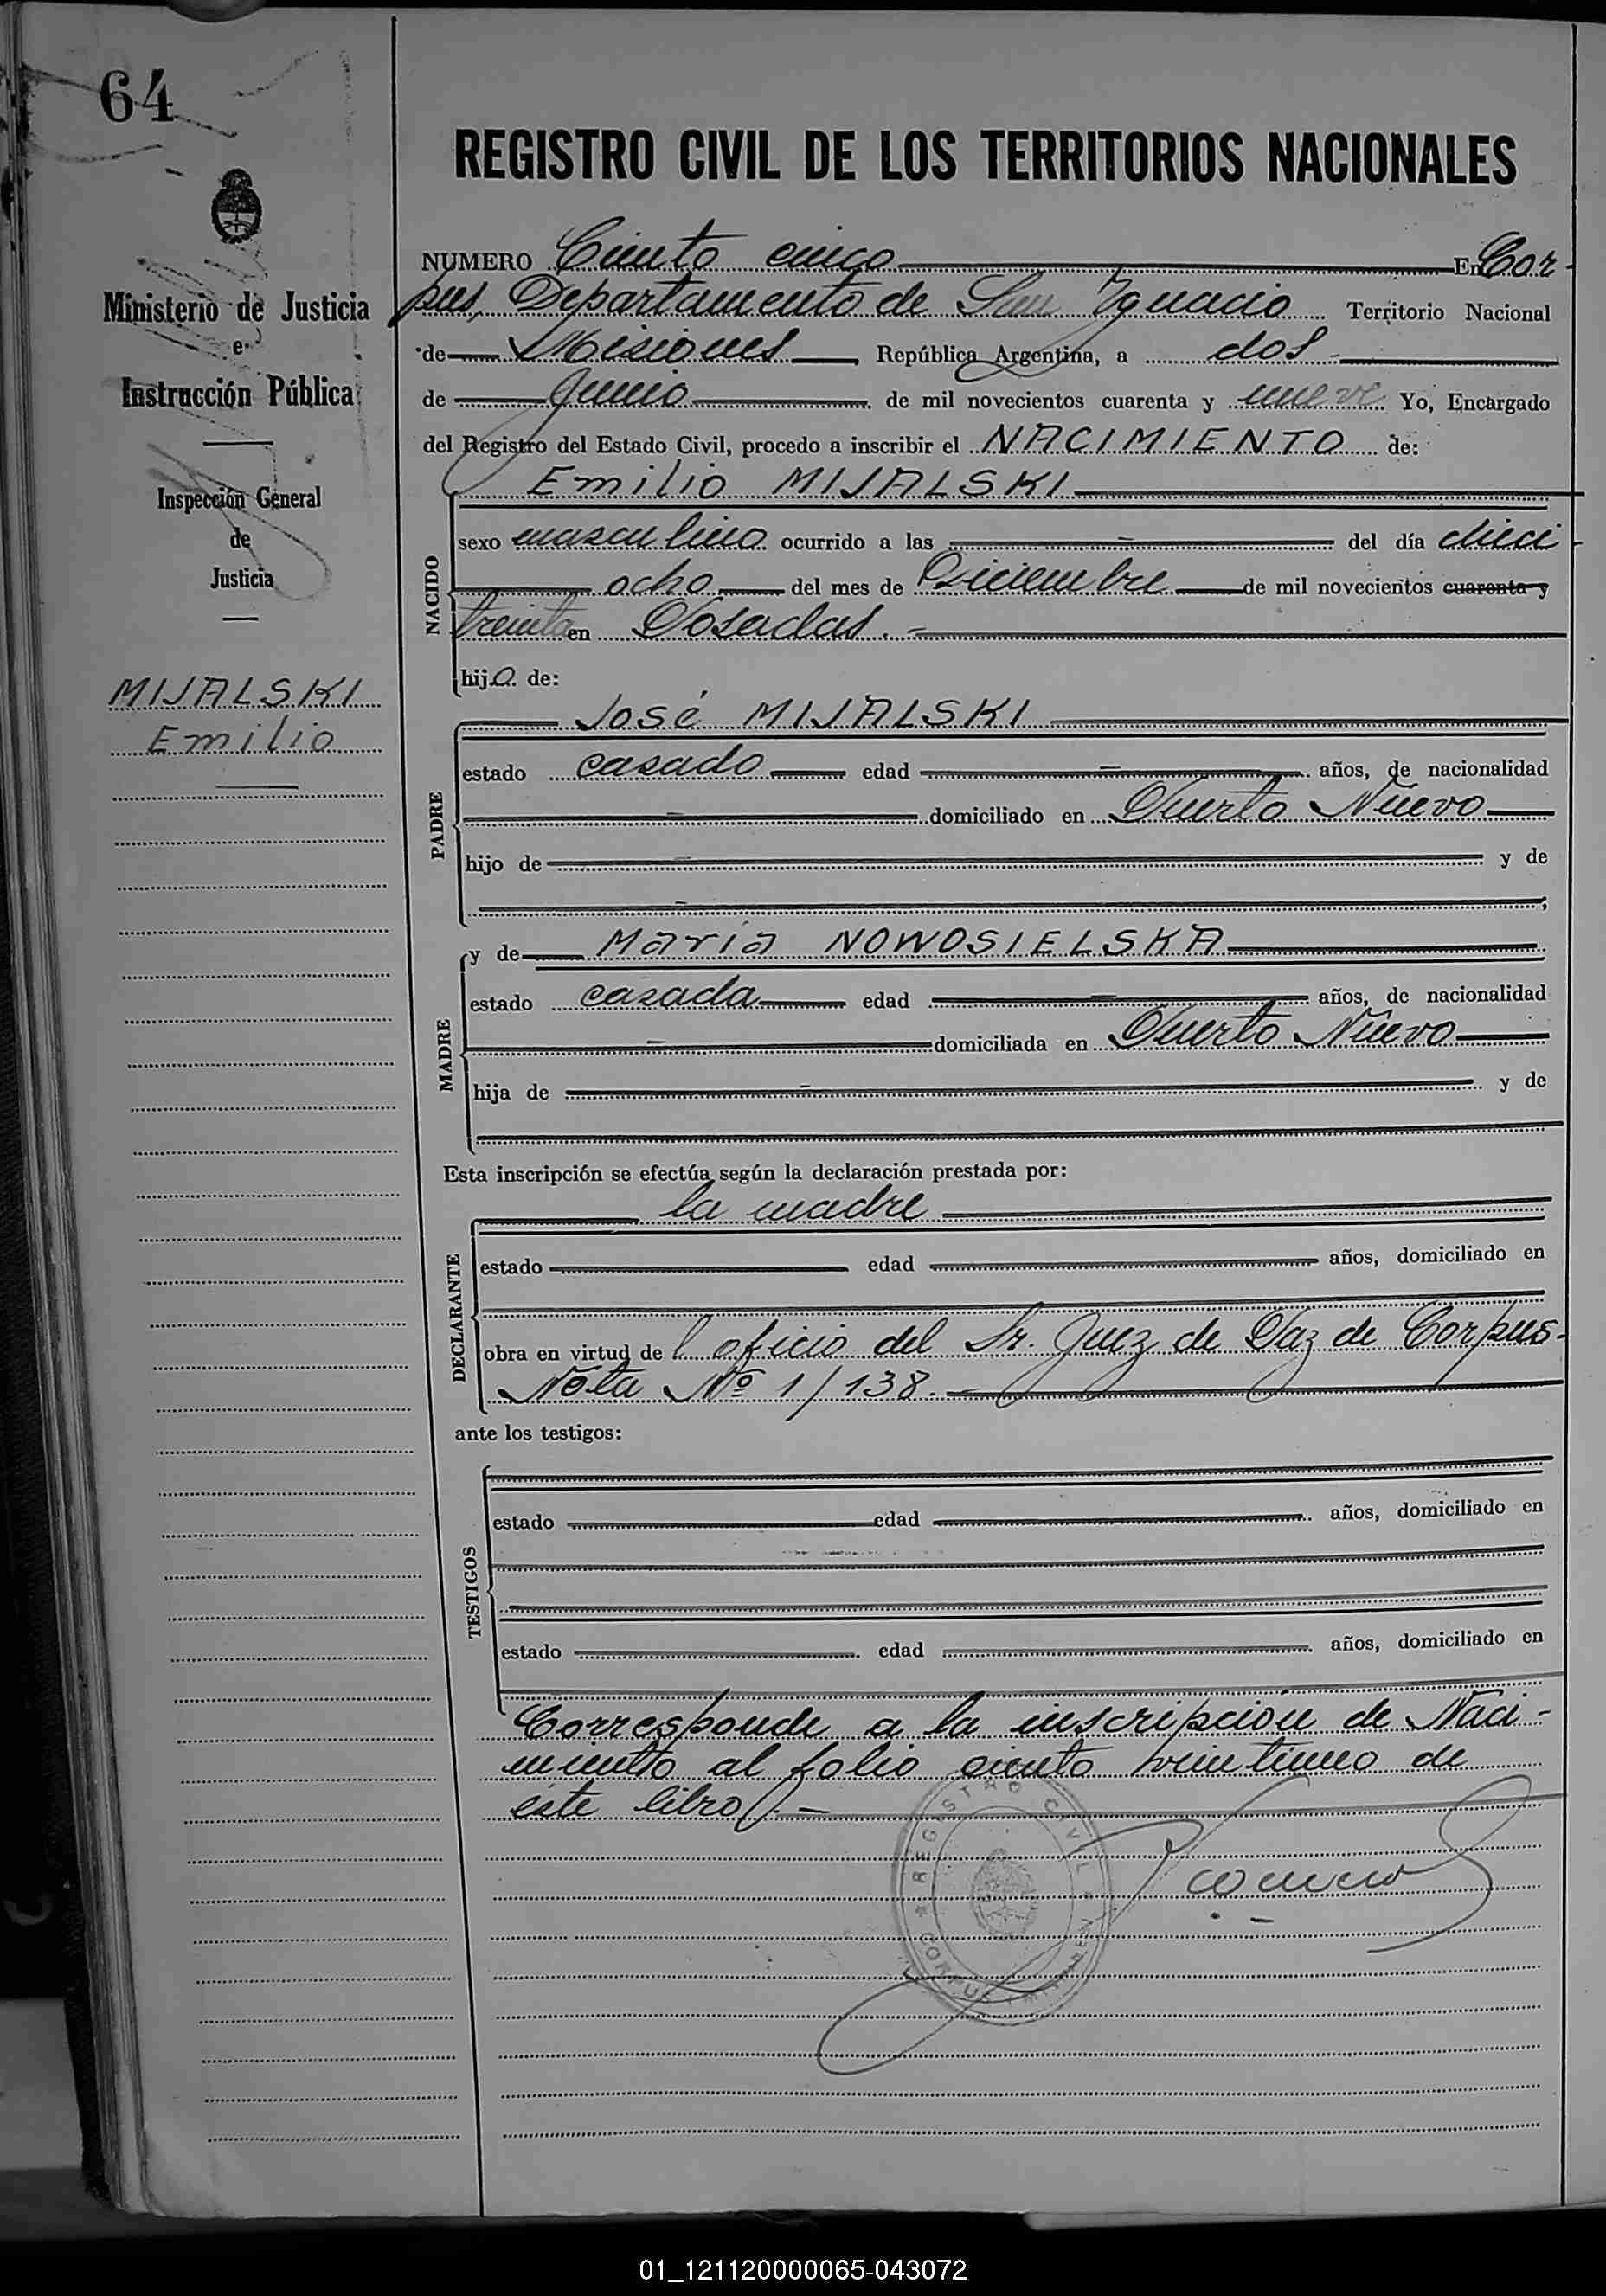 64
REGISTRO CIVIL DE LOS TERRITORIOS NACIONALES
Ministerio de Justicia
e
Instrucción Pública
Inspección General
de
Justicia
MIJALSKI
Emilio
NUMERO Ciento cinco En Cor-
pus, Departamento de San Ygnacio Territorio Nacional
de Misiones, República Argentina, a dos
de Junio de mil novecientos cuarenta y nueve Yo, Encargado
del Registro del Estado Civil, procedo a inscribir el NACIMIENTO de:
Emilio MIJALSKI
NACIDO
sexo masculino ocurrido a las del día dieci-
ocho del mes de Diciembre de mil novecientos cuarenta y
treinta en Posadas.
hijo de:
PADRE
José MIJALSKI
estado casado edad años, de nacionalidad
domiciliado en Puerto Nuevo
hijo de y de
MADRE
y de María NOWOSIELSKA
estado casada edad años, de nacionalidad
domiciliada en Puerto Nuevo
hija de y de
Esta inscripción se efectúa según la declaración prestada por:
DECLARANTE
la madre
estado edad años, domiciliado en
obra en virtud del oficio del Sr. Juez de Paz de Corpus-
Nota Nº 1/138.
ante los testigos:
TESTIGOS
estado edad años, domiciliado en
estado edad años, domiciliado en
Corresponde a la inscripción de Naci-
miento al folio ciento veintiuno de
éste libro.
REGISTRO CIVIL
CORPUS
01_121120000065-043072